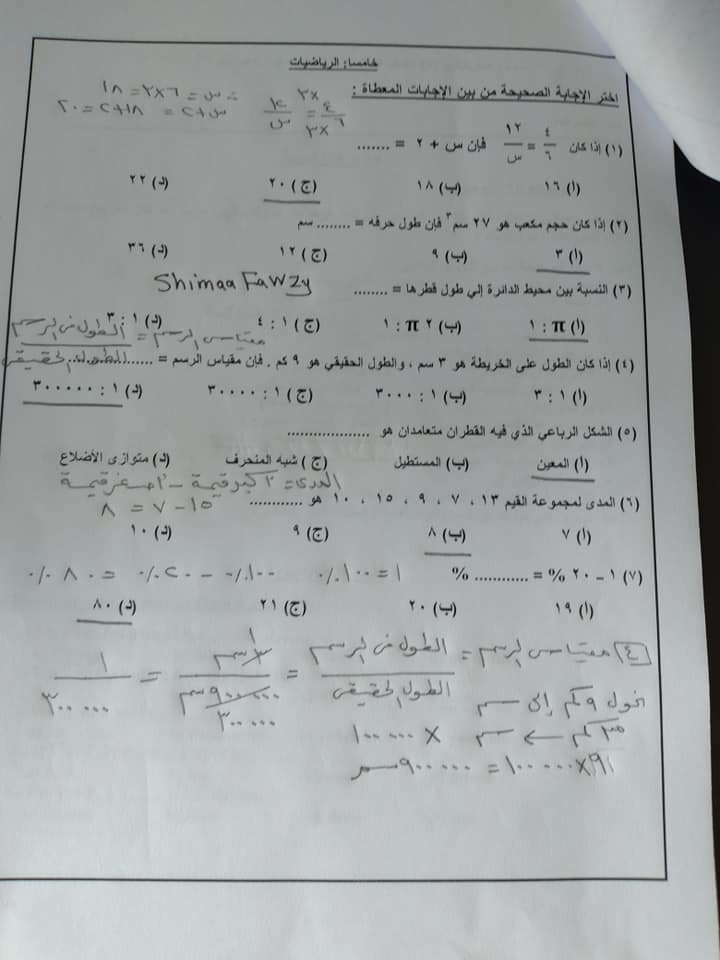 خامسا: الرياضيات
اختر الإجابة الصحيحة من بين الإجابات المعطاة :
∴ س = ٦×٣ = ١٨
س+٢ = ١٨+٢ = ٢٠
٤/٦ ×٣/×٣ = ١٢/س
(١) إذا كان ٤/٦ = ١٢/س فإن س + ٢ = .......
(أ) ١٦ (ب) ١٨ (ج) ٢٠ (د) ٢٢
(٢) إذا كان حجم مكعب هو ٢٧ سم٣ فإن طول حرفه = ........ سم
(أ) ٣ (ب) ٩ (ج) ١٢ (د) ٣٦
Shimaa Fawzy
(٣) النسبة بين محيط الدائرة إلي طول قطرها = ........
(أ) π : ١ (ب) ٢ π : ١ (ج) ١ : ٤ (د) ١ : ٣
مقياس الرسم = الطول فى الرسم / الطول الحقيقى
(٤) إذا كان الطول على الخريطة هو ٣ سم ، والطول الحقيقي هو ٩ كم . فإن مقياس الرسم = ........
(أ) ١ : ٣ (ب) ١ : ٣٠٠٠ (ج) ١ : ٣٠٠٠٠ (د) ١ : ٣٠٠٠٠٠
(٥) الشكل الرباعي الذي فيه القطران متعامدان هو ...................
(أ) المعين (ب) المستطيل (ج) شبه المنحرف (د) متوازى الأضلاع
المدى = أكبر قيمة - أصغر قيمة
١٥ - ٧ = ٨
(٦) المدى لمجموعة القيم ١٣ ، ٧ ، ٩ ، ١٥ ، ١٠ هو ............
(أ) ٧ (ب) ٨ (ج) ٩ (د) ١٠
(٧) ١ – ٢٠ % = ............ %
١ = ١٠٠٪ ١٠٠٪ - ٢٠٪ = ٨٠٪
(أ) ١٩ (ب) ٢٠ (ج) ٢١ (د) ٨٠
٤) مقياس الرسم = الطول فى الرسم / الطول الحقيقى = ٣ سم / ٩٠٠٠٠٠ سم = ١ / ٣٠٠٠٠٠
١
٣٠٠٠٠٠
نحول ٩ كم إلى سم
من كم ← سم × ١٠٠٠٠٠
٩ × ١٠٠٠٠٠ = ٩٠٠٠٠٠ سم